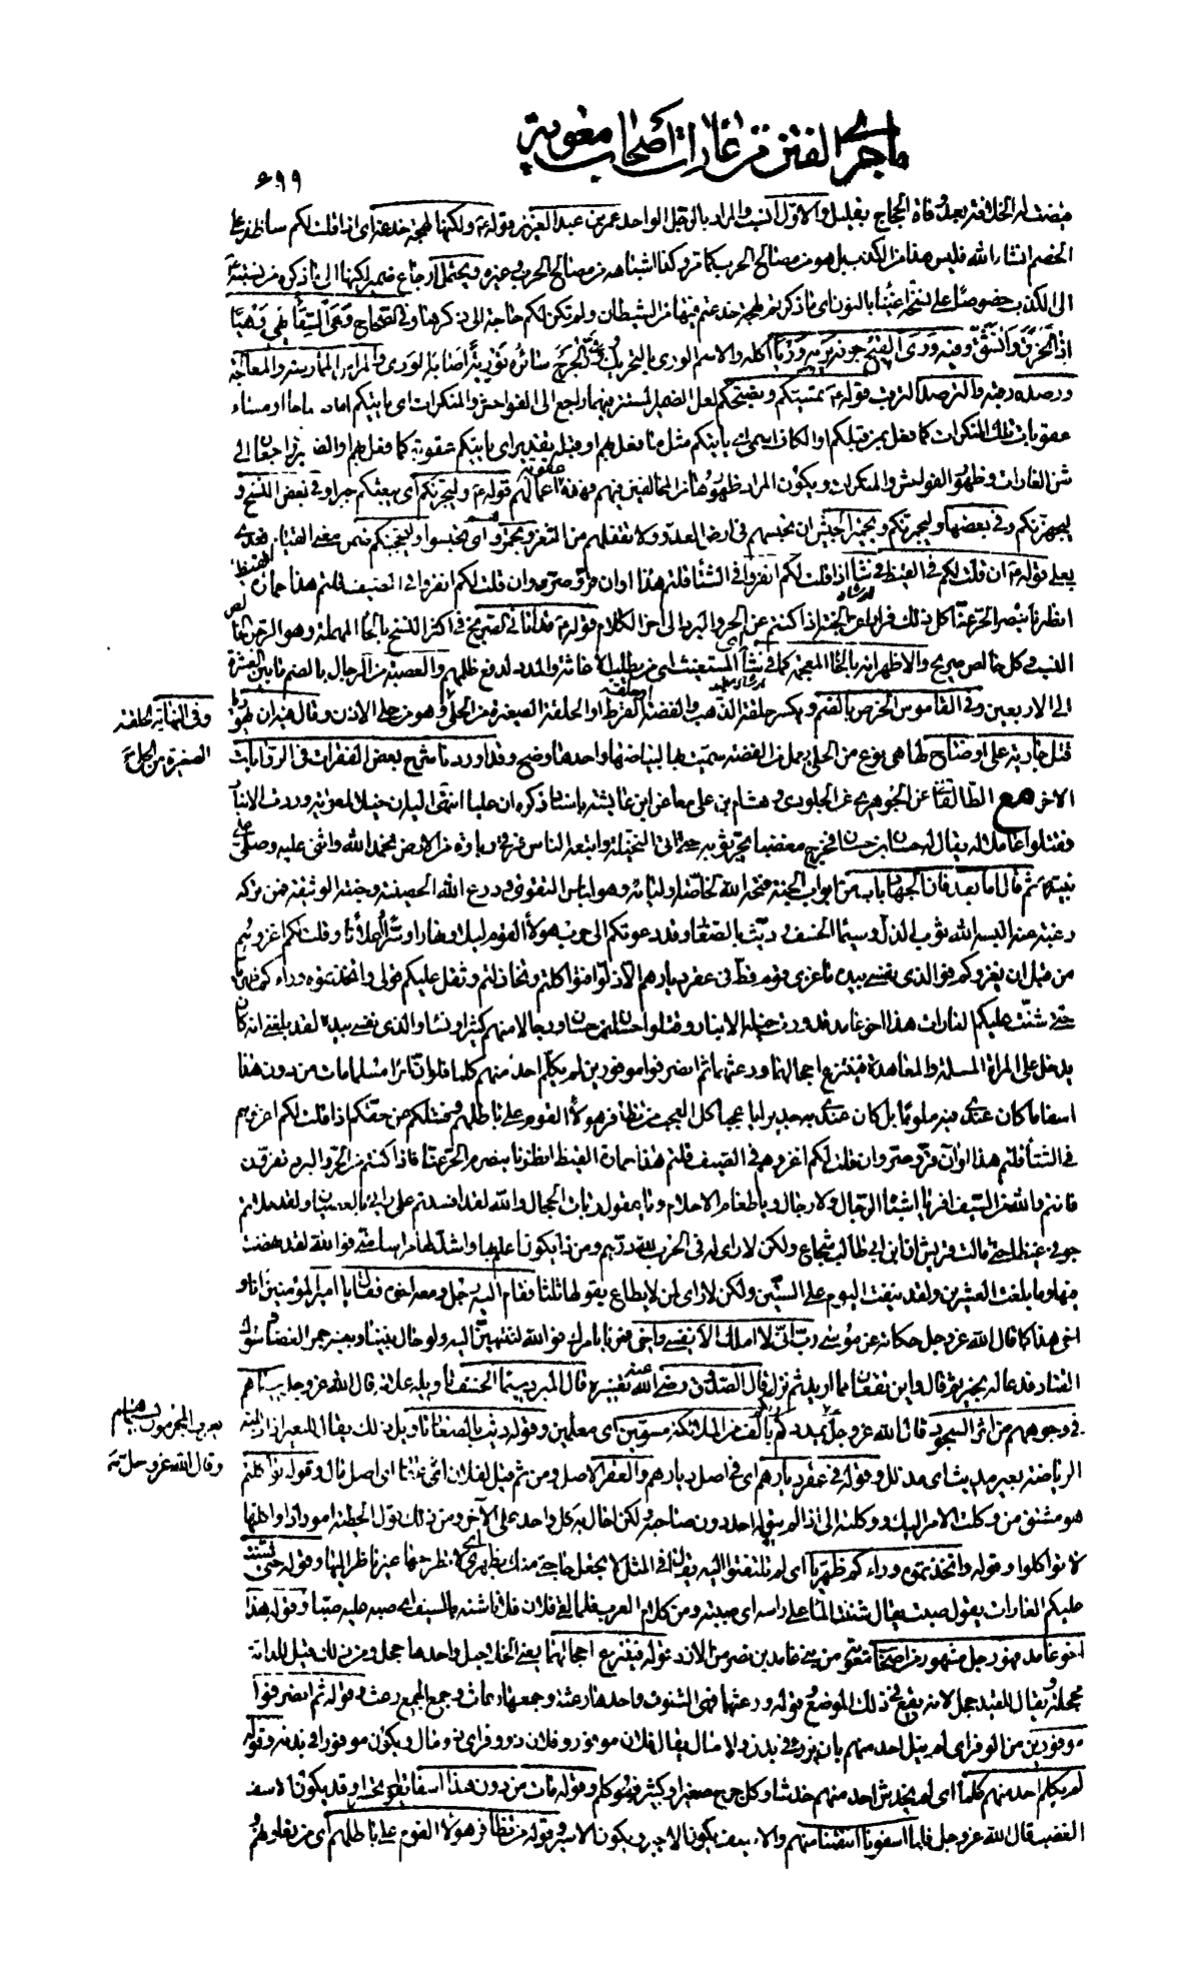 ما جرى الفتن من غارات أصحاب معوية
٦٩٩
الخلافة بعد وفاة الحجاج بقليل والاول انسب والمراد بالرجل الواحد عمر بن عبد العزيز قوله ع ولكنها لهجة خدعة اى اذا قلت لكم ساظفر على
الخصم انشاء الله فليس هذا من الكذب بل هو من مصالح الحرب كما مر وكذا اشباهه من مصالح الحرب وغيره ويحتمل ارجاع ضمير لكنها الى ما ذكر من نسبته
الى الكذب خصوصًا على نسخة بالنون اى ما ذكرتم لهجة خدعتم فيها من الشيطان ولم تكن لكم حاجة الى ذكرها وفى الصحاح وهى السقا يهى وهيا
اذا تخرق وانشق وفيه ورى القيح جوفه يريه وريا اكله والاسم الورى بالتحريك
قوله ع بمثبتكم لعل الضمير المستتر فيهما راجع الى الفواحش والمنكرات اى ياتيكم
عقوبات تلك المنكرات كما فعل بمن قبلكم او الكاف اسمى اى ياتيكم مثل ما فعل بهم او فيه تقدير اى ياتيكم عقوبة كما فعل بهم والضمير راجعان الى
شن الغارات وظهور الفواحش والمنكرات ويكون المراد ظهورها من المخالفين فيهم فهذه عقوبة اعمالهم قوله ع وليجزينكم وفى بعض النسخ
وفى بعضها وليجمرنكم وتجمير الجيش ان تحبسهم فى ارض العدو ولا تقفلهم من الثغر وتجمروا اى تحبسوا
قوله ع ان قلت لكم فى القيظ وفى شا اذا قلت لكم انفروا فى الشتا قلتم هذا اوان قر وصر وان قلت لكم انفروا فى الصيف قلتم هذا حمارة القيظ
انظرنا ينصرم الحر عنا كل ذلك فرارا عن الجنة اذا كنتم عن الحر والبرد الى اخر الكلام قوله ع فى اكثر النسخ بالحاء المهملة وهو الرجل الخالص
النسب وكل خالص صريح والاظهر انه بالخاء المعجمة كما فى شا اى المستغيث اى من يطلب الاغاثة والمدد لدفع ظلمهم والعصبة من الرجال بالضم ما بين العشرة
الى الاربعين وفى القاموس الخرص بالضم ويكسر حلقة الذهب والفضة او حلقة القرط او الحلقة الصغيرة من الحلى وهو من حلى الاذن وقال فيه ان يهوديا
قتل جارية على اوضاح لها هى نوع من الحلى يعمل من الفضة سميت بها لبياضها واحدها وضح وقد اوردنا شرح بعض الفقرات فى الروايات
الاخر مع الطالقانى عن الجلودى عن الجوهرى عن هشام بن على معا عن ابن عايشة باسناد ذكره ان عليا انتهى اليه ان خيلا لمعوية وردت الانبار
فقتلوا عاملا له يقال له حسان بن حسان فخرج مغضبا يجر ثوبه حتى اتى النخيلة واتبعه الناس فرقى رباوة من الارض فحمد الله واثنى عليه وصلى على
نبيه ص ثم قال اما بعد فان الجهاد باب من ابواب الجنة فتحه الله لخاصة اوليائه وهو لباس التقوى ودرع الله الحصينة وجنته الوثيقة فمن تركه
رغبة عنه البسه الله ثوب الذل وسيما الخسف وديث بالصغار وقد دعوتكم الى حرب هولاء القوم ليلا ونهارا وسرا واعلانا وقلت لكم اغزوهم
من قبل ان يغزوكم فو الذى نفسى بيده ما غزى قوم قط فى عقر ديارهم الا ذلوا فتواكلتم وتخاذلتم وثقل عليكم قولى واتخذتموه وراءكم ظهريا
حتى شنت عليكم الغارات هذا اخو غامد قد وردت خيله الانبار وقتلوا حسان بن حسان ورجالا منهم كثيرا ونساء والذى نفسى بيده لقد بلغنى انه كان
يدخل على المراة المسلمة والمعاهدة فينتزع احجالهما ورعثهما ثم انصرفوا موفورين لم يكلم احد منهم كلما فلو ان امرا مسلما مات من دون هذا
اسفا ما كان عندى فيه ملوما بل كان عندى به جديرا يا عجبا كل العجب من تظافر هولاء القوم على باطلهم وفشلكم عن حقكم اذا قلت لكم اغزوهم
فى الشتا قلتم هذا اوان قر وصر وان قلت لكم اغزوهم فى الصيف قلتم هذا حمارة القيظ انظرنا ينصرم الحر عنا فاذا كنتم من الحر والبرد تفرون
فانتم والله من السيف افر يا اشباه الرجال ولا رجال ويا طغام الاحلام ويا عقول ربات الحجال والله لقد افسدتم على رايى بالعصيان ولقد ملاتم
جوفى غيظا حتى قالت قريش ان ابن ابى طالب شجاع ولكن لا راى له فى الحرب لله درهم ومن ذا يكون اعلم بها واشد لها مراسا منى فو الله لقد نهضت
فيها وما بلغت العشرين ولقد نيفت اليوم على الستين ولكن لا راى لمن لا يطاع يقولها ثلثا فقام اليه رجل ومعه اخوه فقال يا امير المؤمنين انا و
اخى هذا كما قال الله عز وجل حكاية عن موسى رب انى لا املك الا نفسى واخى فمرنا بامرك فو الله لننتهين اليه ولو حال بيننا وبينه جمر الغضا وشوك
القتاد فدعا له بخير ثم قال واين تقعان مما اريد ثم نزل قال الصدوق رضى الله عنه تفسيره قال المبرد سيما الخسف تاويله علامة قال الله عز وجل سيماهم
فى وجوههم من اثر السجود قال الله عز وجل يمددكم بالف من الملائكة مسومين اى معلمين وقوله ديث بالصغار تاويل ذلك يقال للبعير اذا ذللته
الرياضة بعير مديث اى مذلل وقوله فى عقر ديارهم اى فى اصل ديارهم والعقر الاصل ومن ثم قيل لفلان عقار اى اصل مال وقوله تواكلتم
هو مشتق من وكلت الامر اليك ووكلته الى اذا لم يتوله احد دون صاحبه ولكن احال به كل واحد على الآخر ومن ذلك قول الحطيئة امور اذا واكلتها
لا تواكلوا وقوله واتخذتموه وراءكم ظهريا اى لم تلتفتوا اليه يقال فى المثل لا تجعل حاجتى منك بظهر اى لا تطرحها غير ناظر اليها وقوله حتى شنت
عليكم الغارات يقول صبت يقال شننت الماء على راسه اى صببته ومن كلام العرب فلما لقى فلان فلانا شنه بالسيف اى صبه عليه صبا وقوله هذا
اخو غامد فهو رجل مشهور من اصحاب معوية من بنى غامد بن نصر من الازد قوله فينتزع احجالهما يعنى الخلاخيل واحدها حجل ومن ذلك قيل للدابة
محجلة ويقال للقيد حجل لانه يقع فى ذلك الموضع وقوله ورعثهما فهى الشنوف واحدها رعثة وجمعها رعاث وجمع الجمع رعث وقوله ثم انصرفوا
موفورين من الوفر اى لم ينل احد منهم بان يرزء فى بدن ولا مال يقال فلان موفور وفلان ذو وفر اى ذو مال ويكون موفورا فى بدنه وقوله
لم يكلم احد منهم كلما اى لم يخدش احد منهم خدشا وكل جرح صغر او كبر فهو كلم وقوله مات من دون هذا اسفا يقول تحسرا وقد يكون الاسف
الغضب قال الله عز وجل فلما اسفونا انتقمنا منهم والاسيف يكون الاجير ويكون الاسير وقوله من تظافر هولاء القوم على باطلهم اى من تعاونهم
وفى النهاية الحلقة
الصغيرة من الحلى
يعرف المجرمون بسيماهم
وقال الله عز وجل